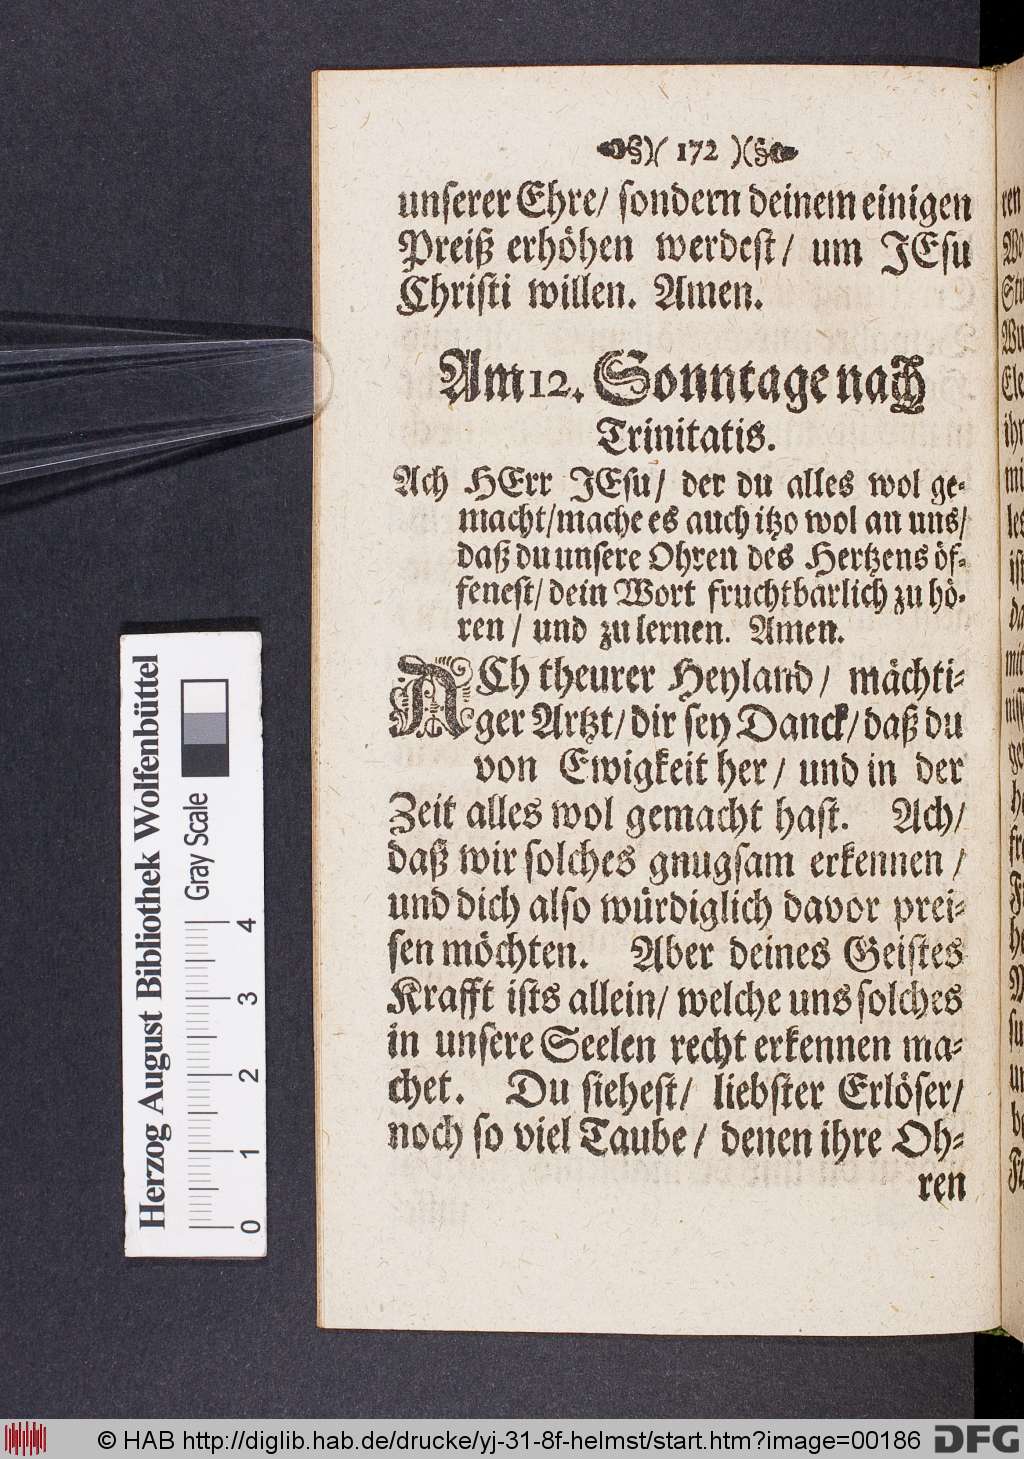 )( 172 )(
unſerer Ehre/ ſondern deinem einigen
Preiß erhöhen werdeſt/ um JEſu
Chriſti willen. Amen.
Am 12. Sonntage nach
Trinitatis.
Ach HErr JEſu/ der du alles wol ge-
macht/mache es auch itzo wol an uns/
daß du unſere Ohren des Hertzens öf-
feneſt/ dein Wort fruchtbarlich zu hö-
ren / und zu lernen. Amen.
ACh theurer Heyland/ mächti-
ger Artzt/ dir ſey Danck/ daß du
von Ewigkeit her/ und in der
Zeit alles wol gemacht haſt. Ach/
daß wir ſolches gnugſam erkennen /
und dich alſo würdiglich davor prei-
ſen möchten. Aber deines Geiſtes
Krafft iſts allein/ welche uns ſolches
in unſere Seelen recht erkennen ma-
chet. Du ſieheſt/ liebſter Erlöſer/
noch ſo viel Taube / denen ihre Oh-
ren
Herzog August Bibliothek Wolfenbüttel
Gray Scale
0 1 2 3 4
© HAB http://diglib.hab.de/drucke/yj-31-8f-helmst/start.htm?image=00186
DFG